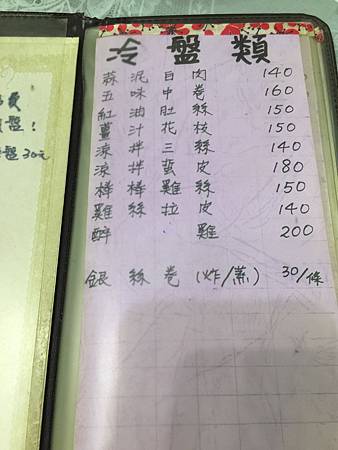 冷盤類
蒜泥白肉 140
五味中卷 160
紅油肚絲 150
薑汁花枝 150
涼拌三絲 140
涼拌蜇皮 180
棒棒雞絲 150
雞絲拉皮 140
醉雞 200
銀絲卷(炸/蒸) 30/條
盤!
盤30元